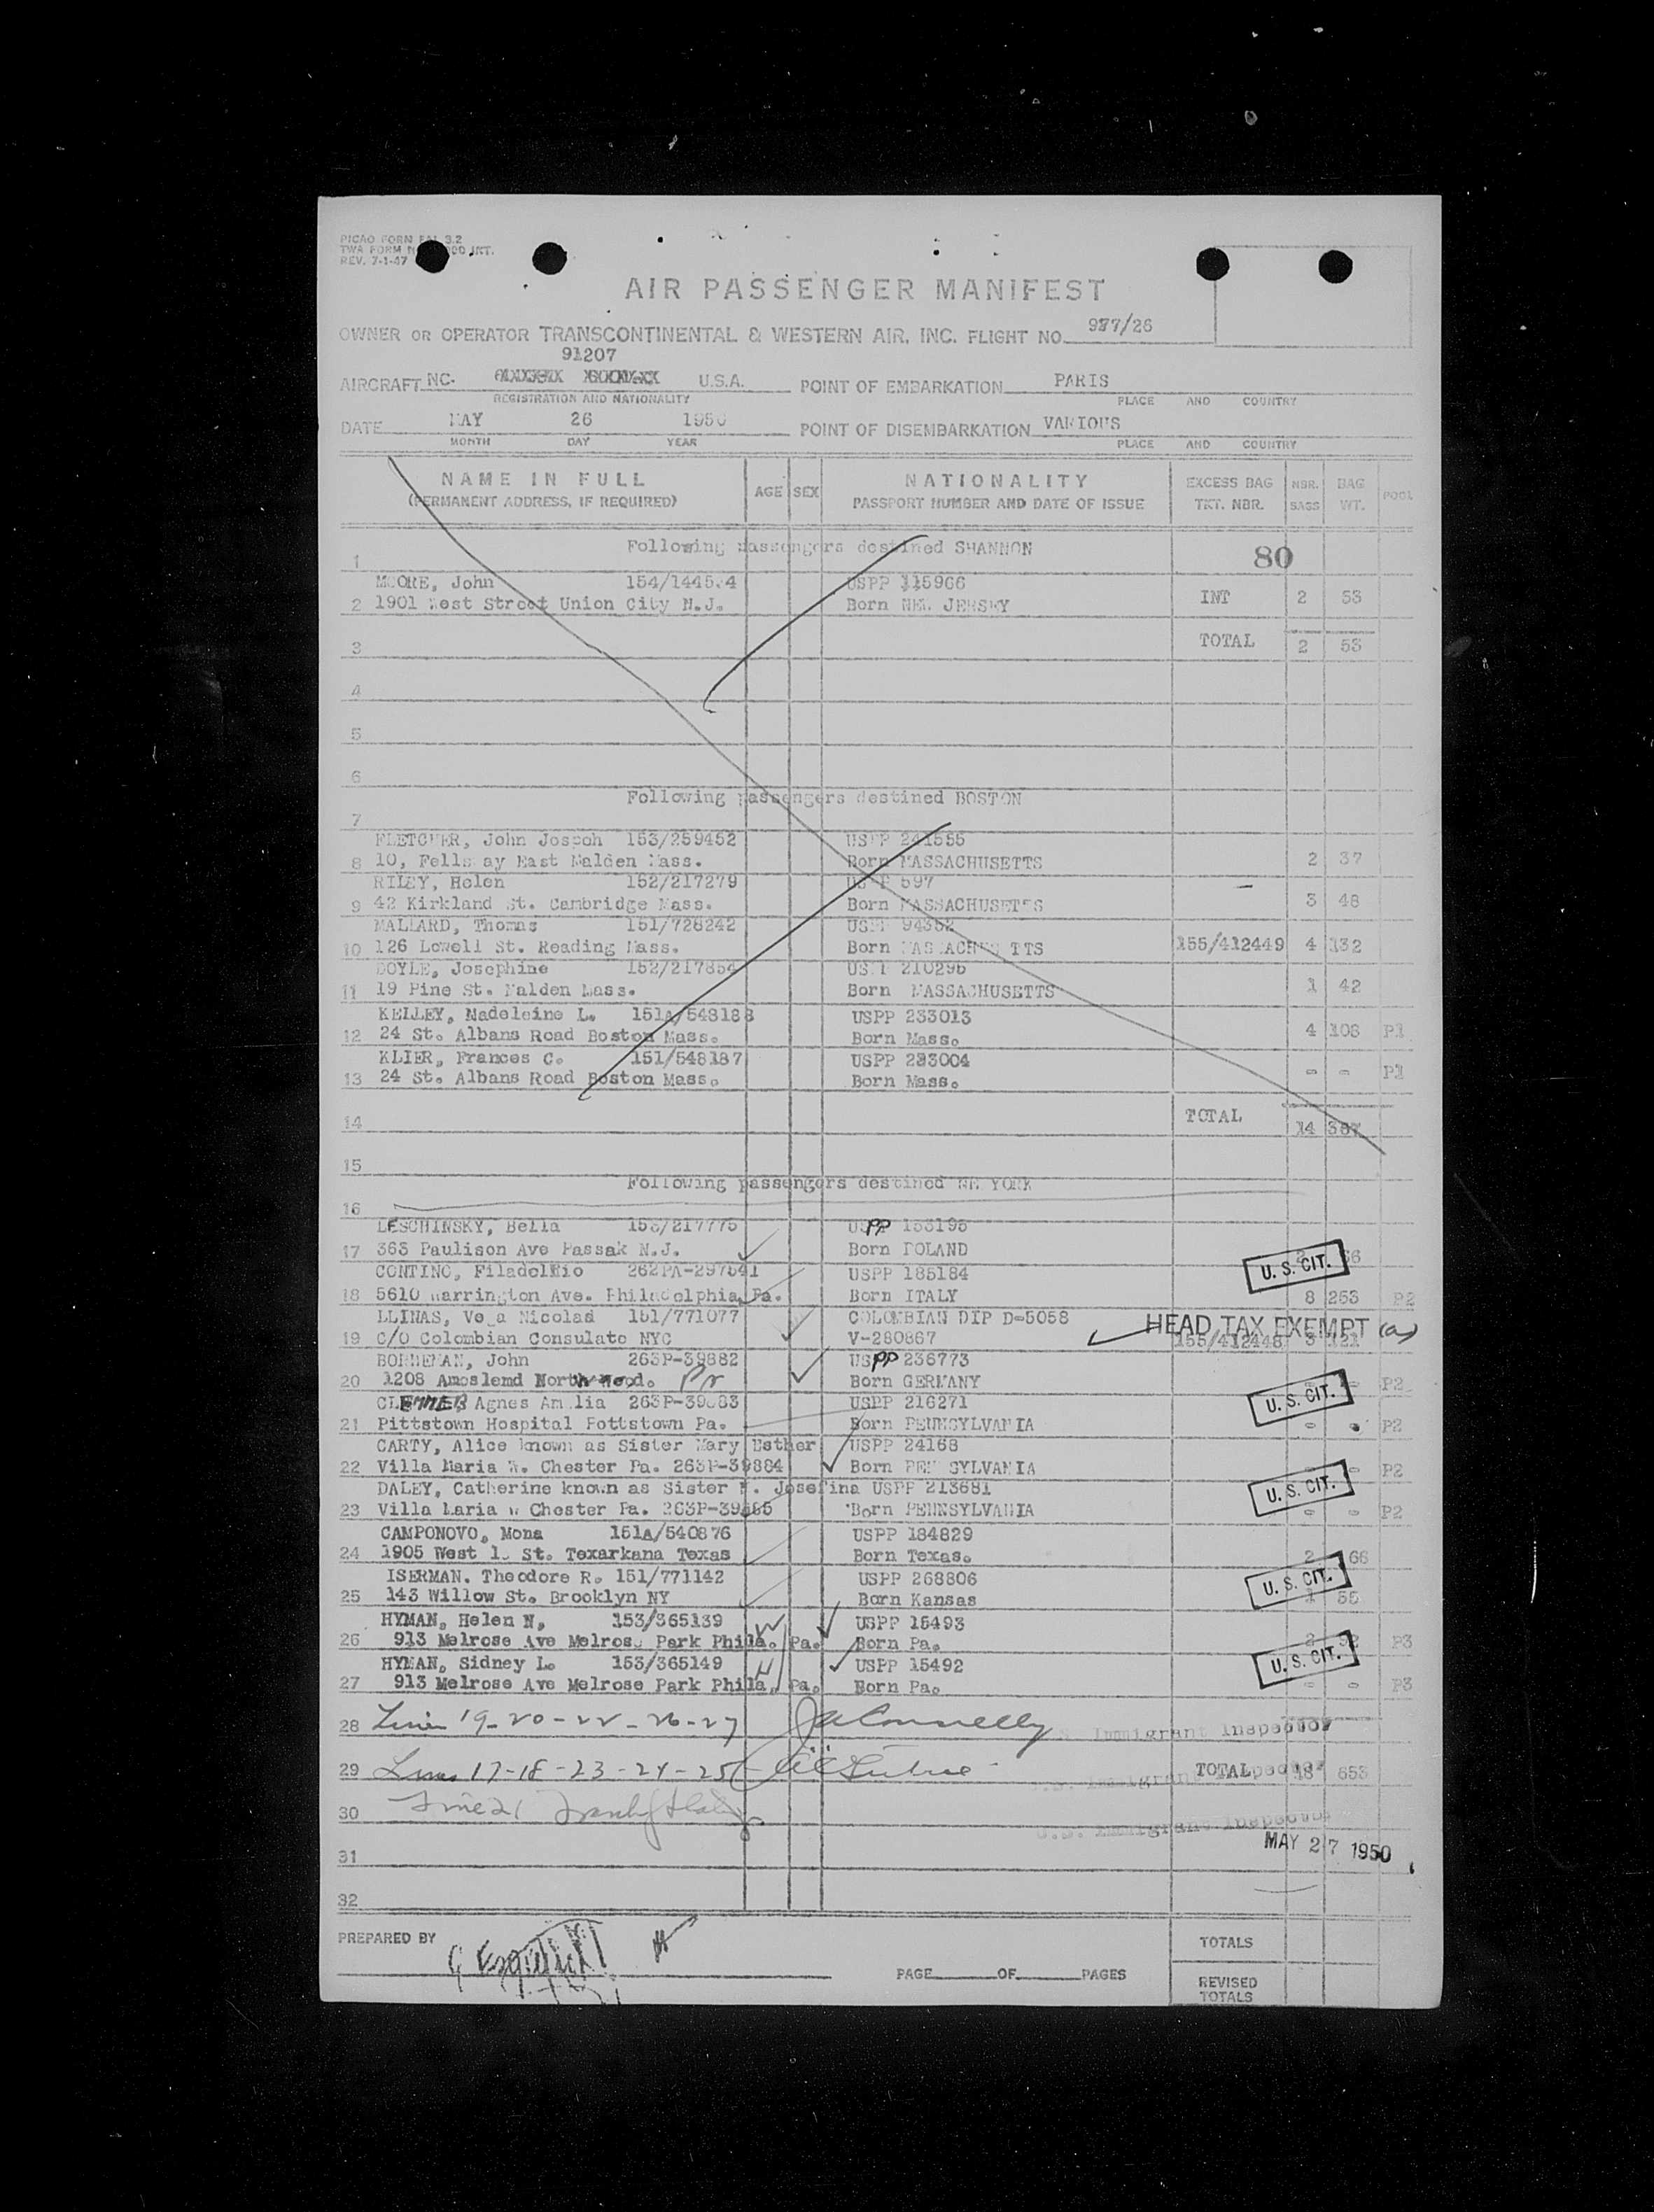 PICAO FORM FAL 3.2
TWA FORM INT.
REV. 7-1-47
AIR PASSENGER MANIFEST
OWNER OR OPERATOR TRANSCONTINENTAL & WESTERN AIR, INC. FLIGHT NO. 977/26
91207
AIRCRAFT NC. U.S.A. POINT OF EMBARKATION PARIS
REGISTRATION AND NATIONALITY PLACE AND COUNTRY
DATE MAY 26 1950 POINT OF DISEMBARKATION VARIOUS
MONTH DAY YEAR PLACE AND COUNTRY
NAME IN FULL AGE SEX NATIONALITY EXCESS BAG NBR. BAG POOL
(PERMANENT ADDRESS, IF REQUIRED) PASSPORT NUMBER AND DATE OF ISSUE TKT. NBR. BAGS WT.
Following passengers destined SHANNON
1 80
MOORE, John USPP 115966
2 1901 West Street Union City N.J. Born NEW JERSEY INT 2 53
3 TOTAL 2 53
4
5
6
Following passengers destined BOSTON
7
FLETCHER, John Joseph 153/259452 USPP 241555
8 10, Fellsway East Malden Mass. Born MASSACHUSETTS 2 37
RILEY, Helen 152/217279 USPP 597
9 42 Kirkland St. Cambridge Mass. Born MASSACHUSETTS 3 48
MALLARD, Thomas 151/728242 USPP 94352
10 126 Lowell St. Reading Mass. Born MASSACHUSETTS 155/412449 4 132
DOYLE, Josephine 152/217854 USPP 210295
11 19 Pine St. Malden Mass. Born MASSACHUSETTS 1 42
KELLEY, Madeleine L. 151A/548188 USPP 233013
12 24 St. Albans Road Boston Mass. Born Mass. 4 108 P1
KLIER, Frances C. 151/548187 USPP 233004
13 24 St. Albans Road Boston Mass. Born Mass. - - P1
14 TOTAL 14 367
15
Following passengers destined NEW YORK
16
LESCHINSKY, Bella 153/217775 USPP 153195
17 363 Paulison Ave Passak N.J. Born POLAND 2 66
U.S. CIT.
CONTINO, Filadelfio 262PA-297541 USPP 185184
18 5610 Warrington Ave. Philadelphia, Pa. Born ITALY 8 253 P2
LLINAS, Vega Nicolas 151/771077 COLOMBIAN DIP D-5058
HEAD TAX EXEMPT (a)
19 C/O Colombian Consulate NYC V-280867 155/412448 3 121
BORNEMAN, John 263P-39882 USPP 236773
20 1208 Amoslemd Northwood. Pr Born GERMANY - - P2
U.S. CIT.
CLEMMER Agnes Amelia 263P-39883 USPP 216271
21 Pittstown Hospital Pottstown Pa. Born PENNSYLVANIA - - P2
CARTY, Alice known as Sister Mary Esther USPP 24168
22 Villa Maria W. Chester Pa. 263P-39884 Born PENNSYLVANIA - - P2
U.S. CIT.
DALEY, Catherine known as Sister M. Josefina USPP 213681
23 Villa Maria W Chester Pa. 263P-39885 Born PENNSYLVANIA - - P2
CAMPONOVO, Mona 151A/540876 USPP 184829
24 1905 West St. Texarkana Texas Born Texas. 2 66
U.S. CIT.
ISERMAN. Theodore R. 151/771142 USPP 268806
25 143 Willow St. Brooklyn NY Born Kansas 1 55
HYMAN, Helen N, 153/365139 USPP 15493
26 913 Melrose Ave Melrose Park Phila. Pa. Born Pa. 2 92 P3
U.S. CIT.
HYMAN, Sidney L. 153/365149 USPP 15492
27 913 Melrose Ave Melrose Park Phila. Pa. Born Pa. - - P3
28 Lines 19-20-22-26-27 J Connelly U.S. Immigrant Inspector
29 Lines 17-18-23-24-25 U.S. Immigrant Inspector TOTAL 18 653
30 Line 21 U.S. Immigrant Inspector
MAY 27 1950
31
32
PREPARED BY TOTALS
PAGE OF PAGES REVISED
TOTALS